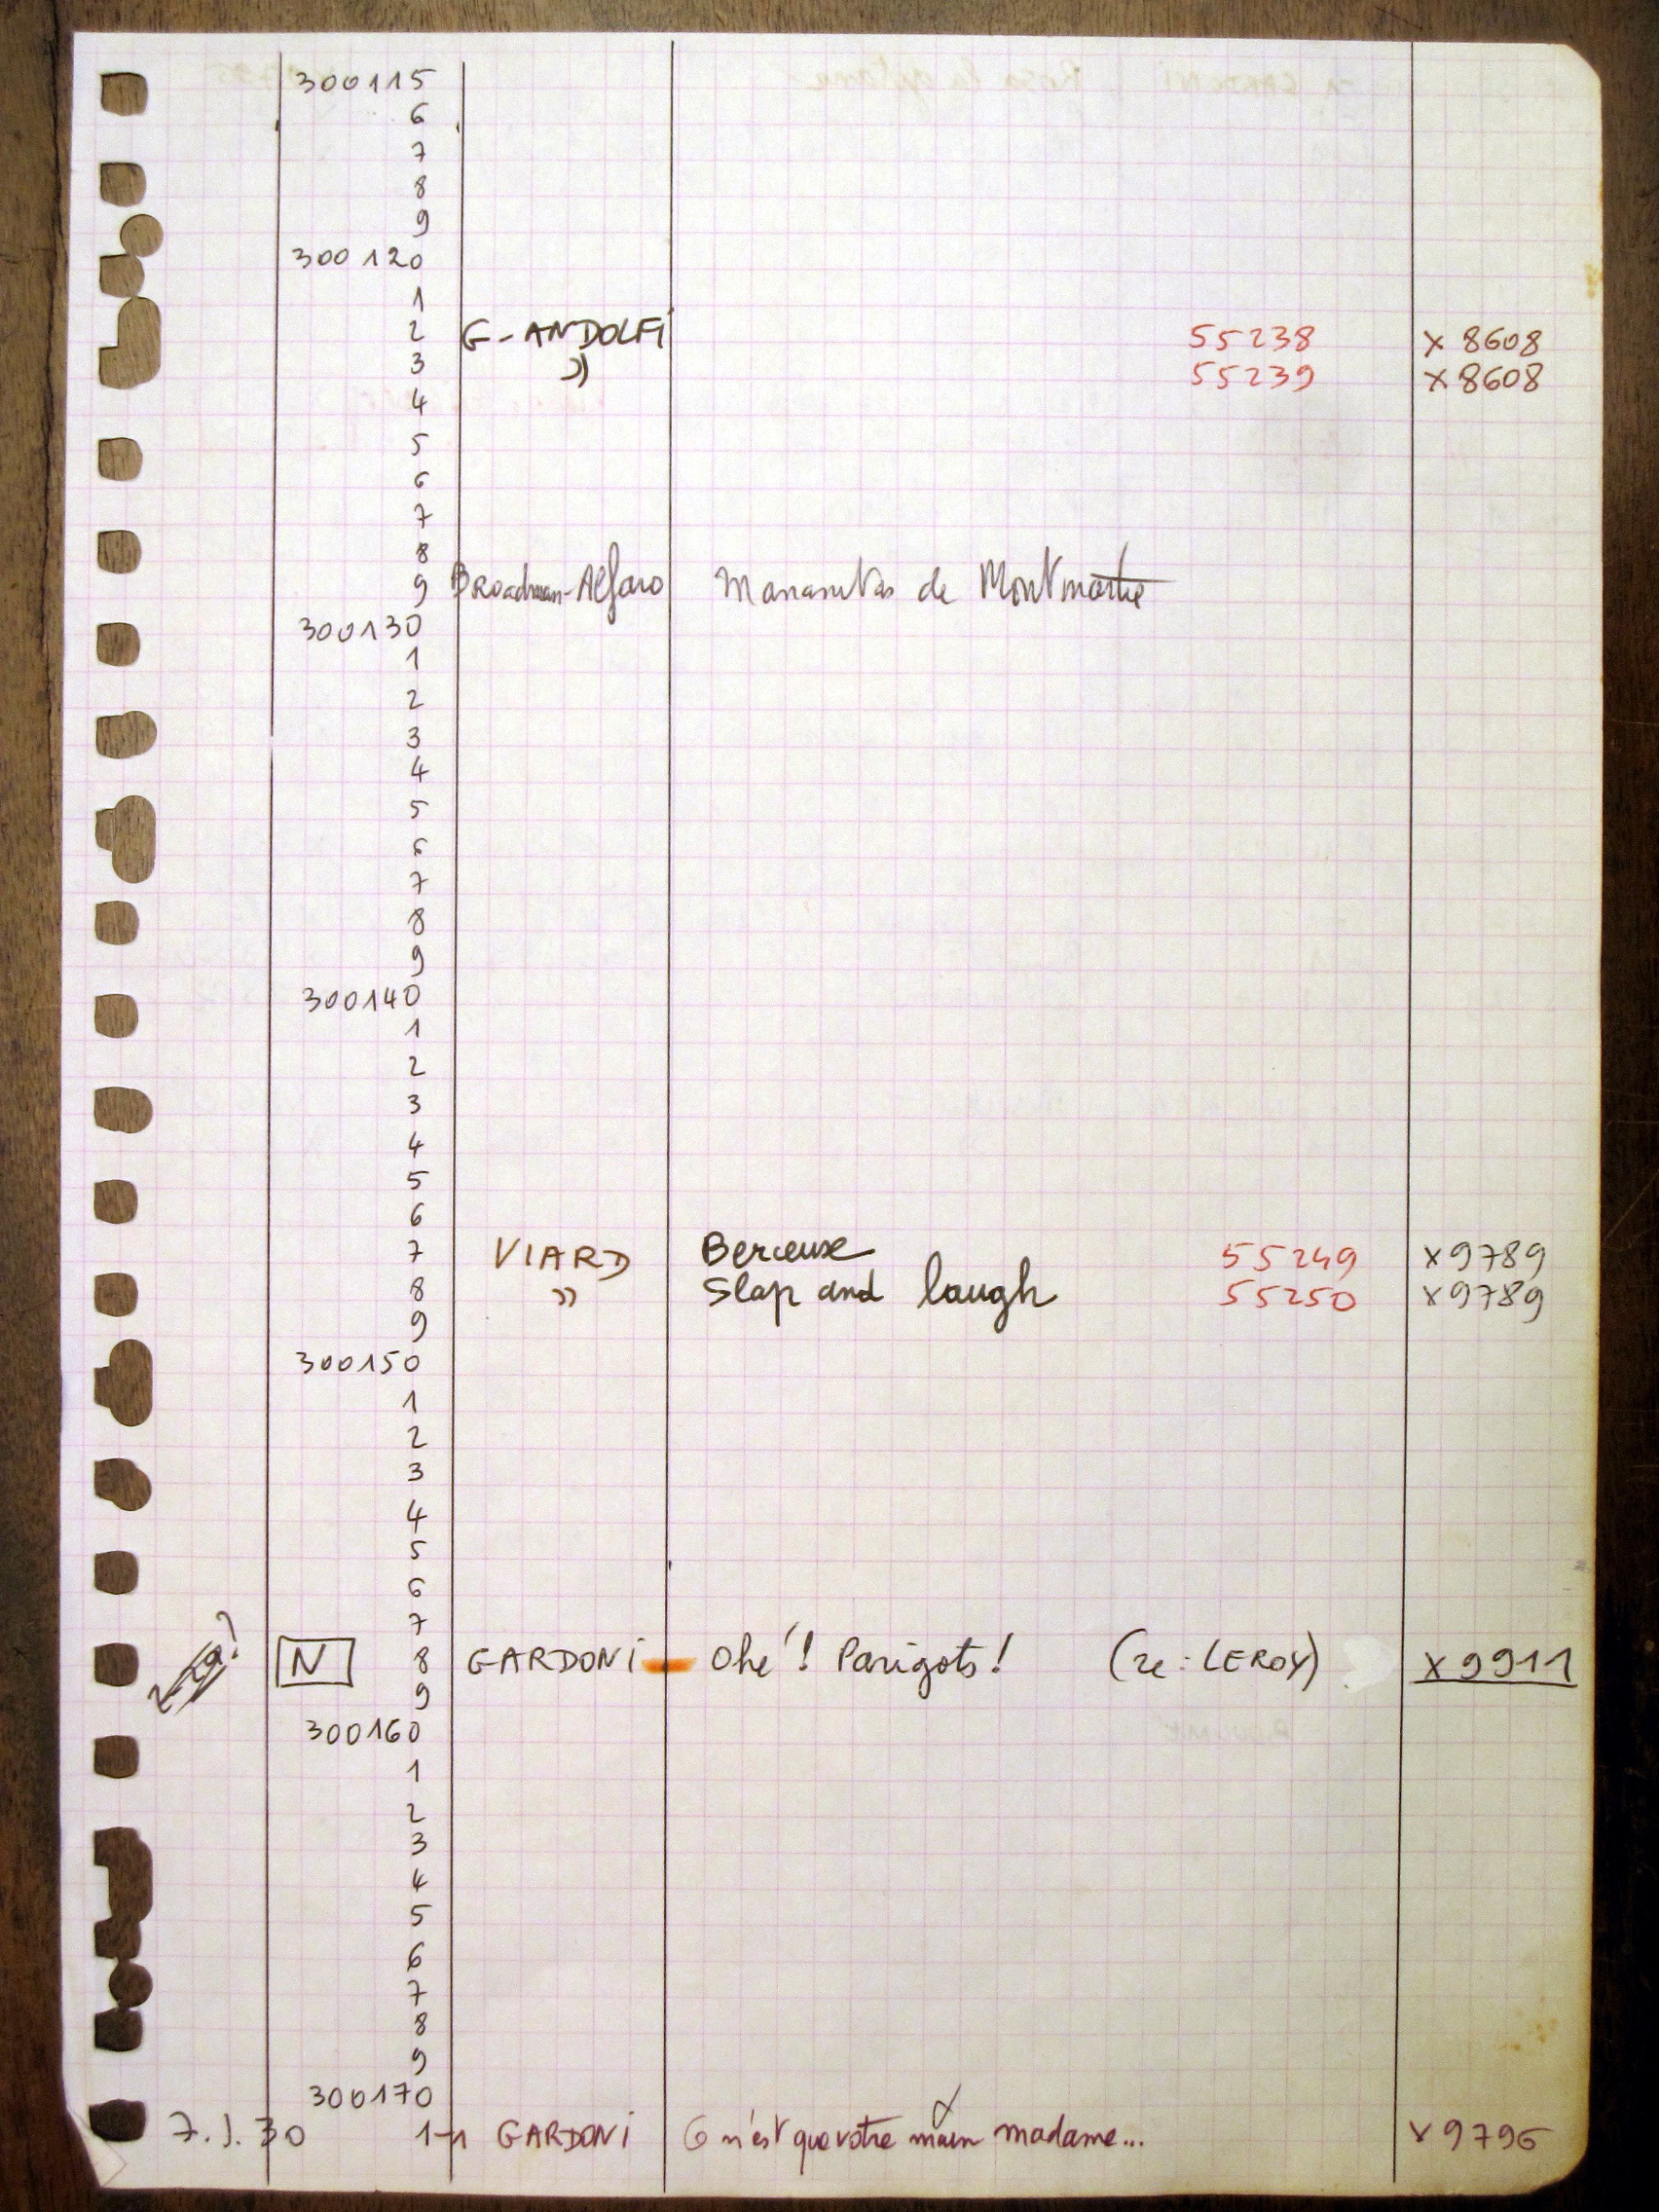 300115
6
7
8
9
300120
1
2 G-ANDOLFI 55238 X 8608
3 " 55239 X 8608
4
5
6
7
8
9 Broadman-Alfaro Mananitas de Montmartre
300130
1
2
3
4
5
6
7
8
9
300140
1
2
3
4
5
6
7 VIARD Berceuse 55249 X 9789
8 " Slap and laugh 55250 X 9789
9
300150
1
2
3
4
5
6
7
N 8 GARDONI Ohé! Parigots! (re: LEROY) X 9911
9
300160
1
2
3
4
5
6
7
8
9
300170
1-1 GARDONI n'est que votre main madame... X 9796